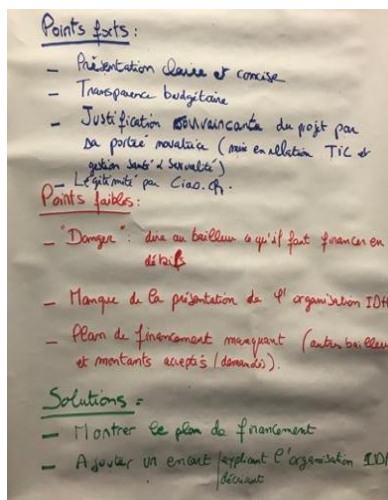 Points forts :
– Présentation claire et concise
– Transparence budgétaire
– Justification convaincante du projet par
sa portée novatrice (mise en relation TIC et
gestion santé & sexualité)
– Légitimité par Ciao.ch.
Points faibles :
– "Danger" : dire au bailleur ce qu'il faut financer en
détails
– Manque de la présentation de l'organisation IDH
– Plan de financement manquant (autres bailleu
et montants acceptés / demandés).
Solutions =
– Montrer le plan de financement
– Ajouter un encart expliquant l'organisation ID
/décrivant